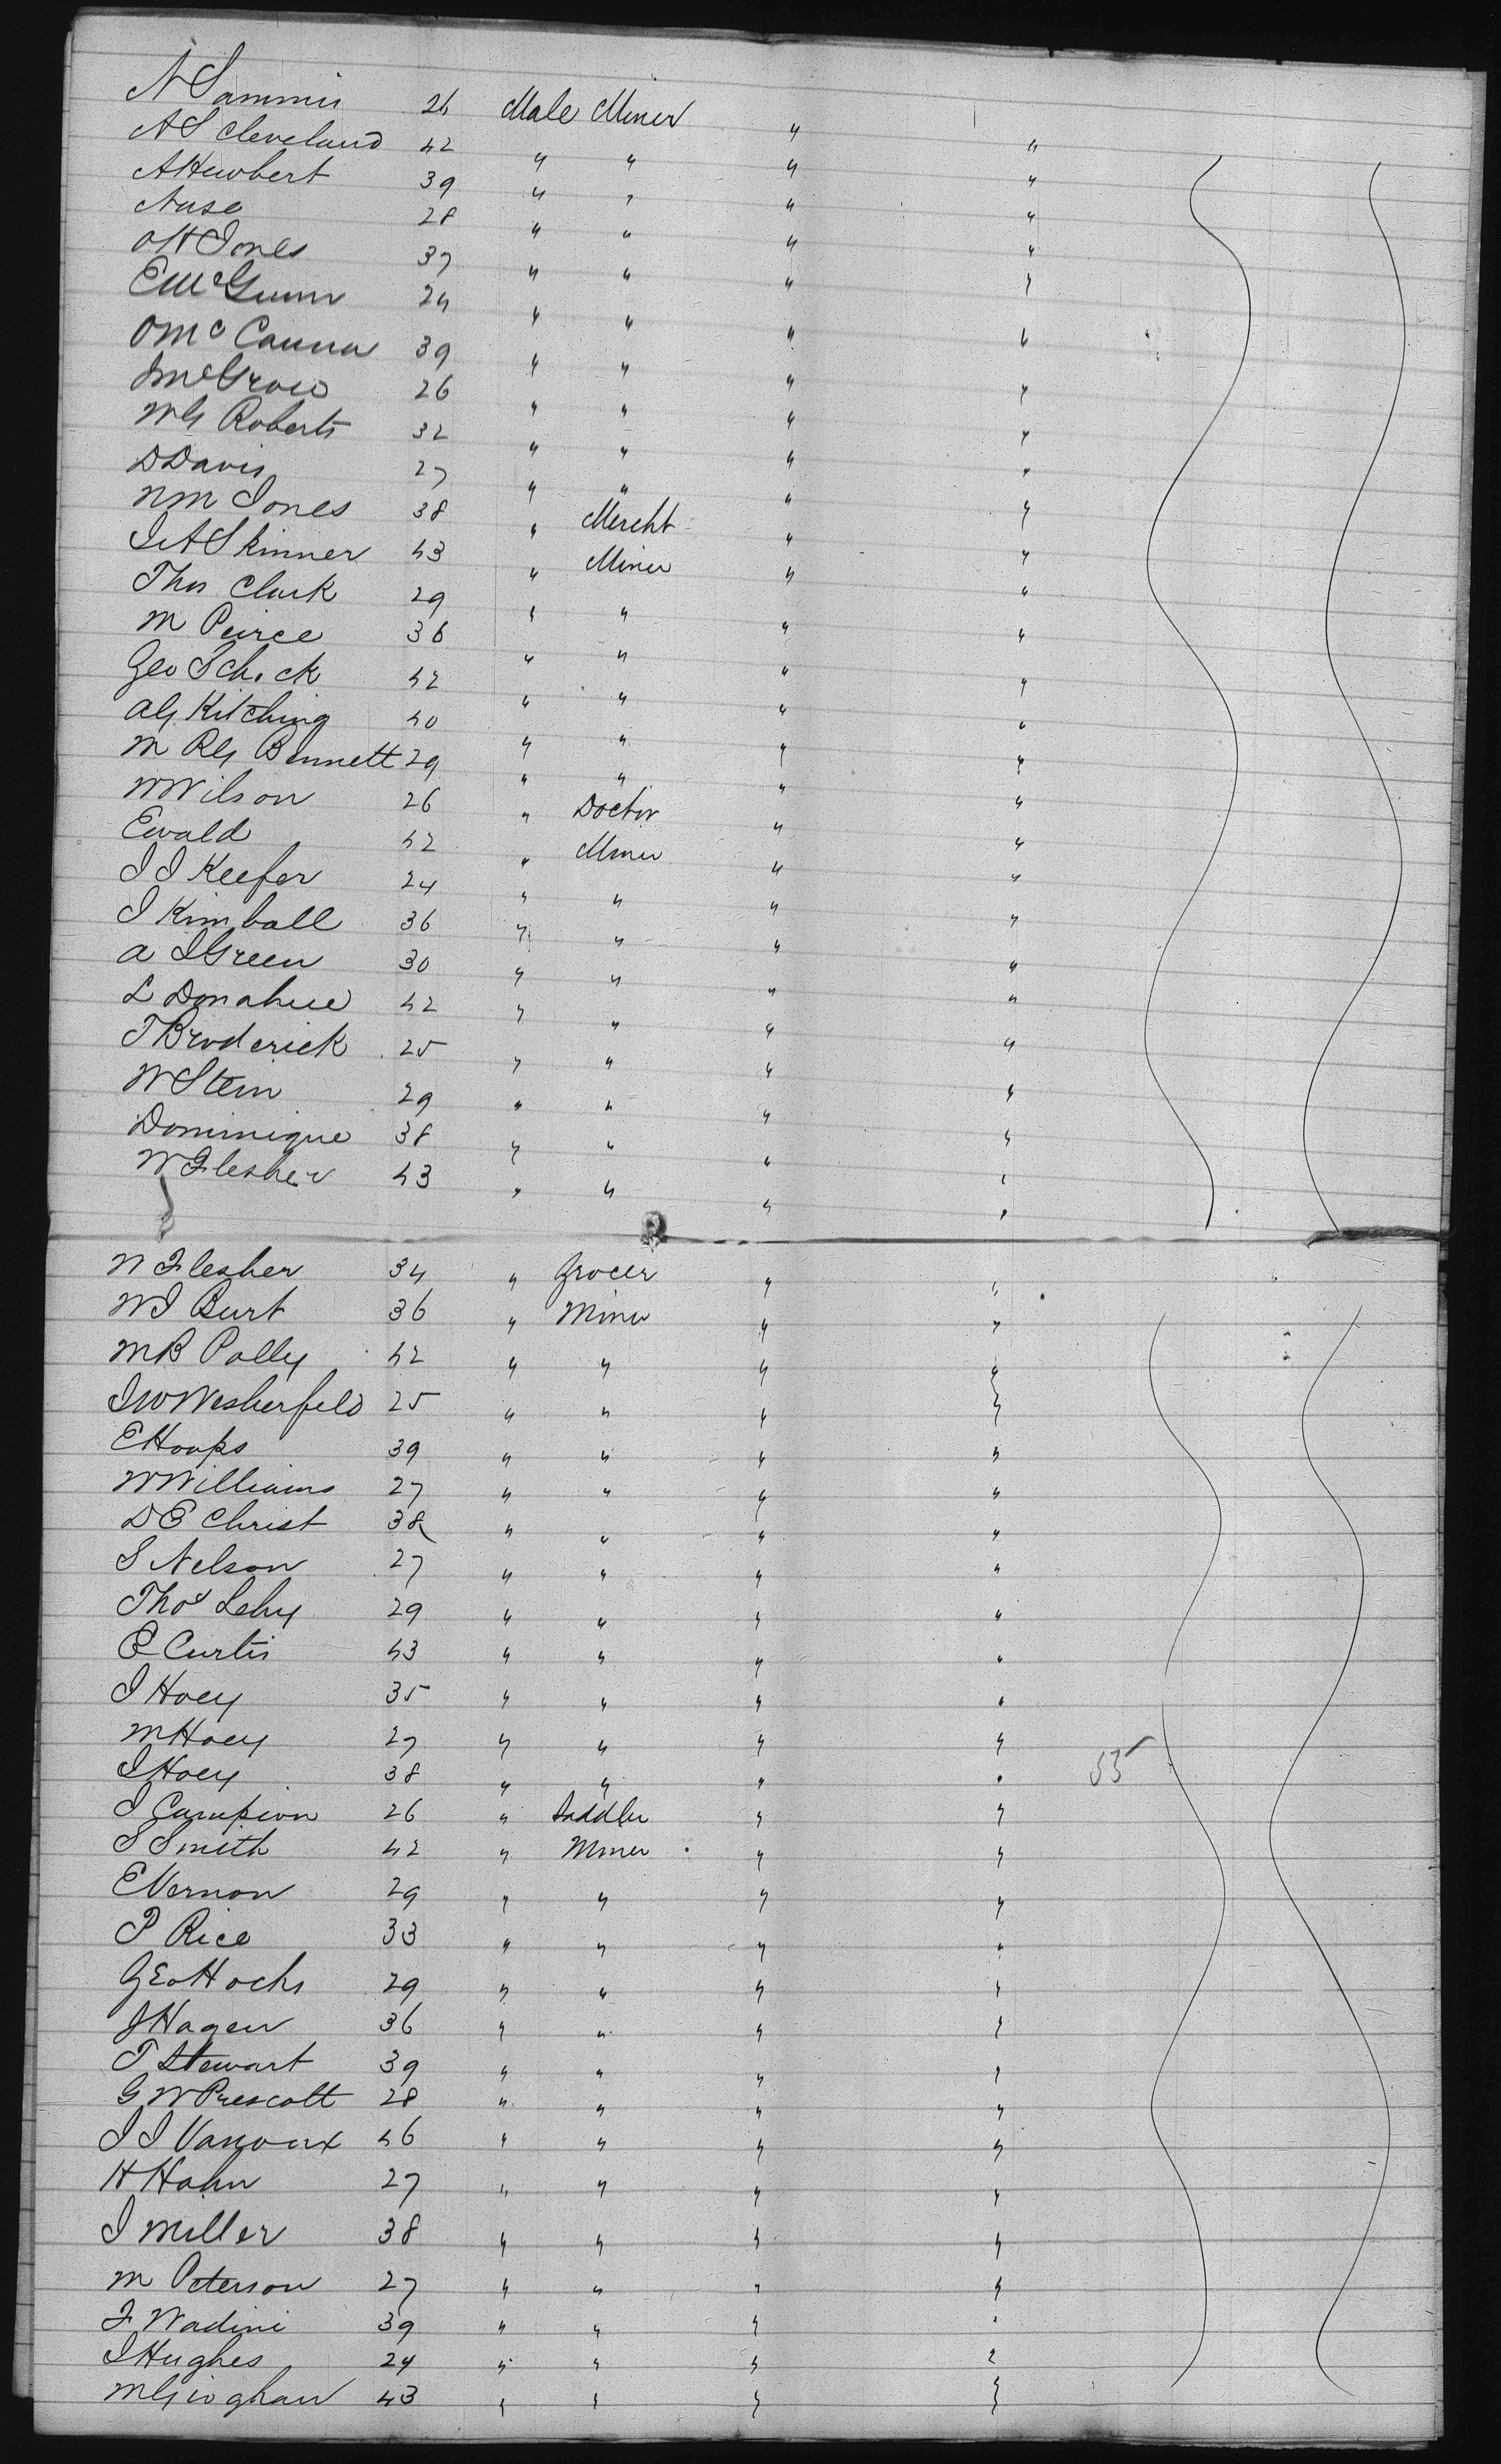 N Sammis 26 Male Miner "
A S Cleveland 42 " " " "
A Hewbert 39 " " " "
Nuse 28 " " " "
O H Jones 37 " " " "
E McGunn 24 " " " "
O McCanna 39 " " " "
J McGrow 26 " " " "
W G Roberts 32 " " " "
D Davis 27 " " " "
N M Jones 38 " Mercht " "
J A Skinner 43 " Miner " "
Thos Clark 29 " " " "
M Peirce 36 " " " "
Geo Schick 42 " " " "
A G Kitching 40 " " " "
M R G Bennett 29 " " " "
W Wilson 26 " Doctor " "
Ewald 42 " Miner " "
J J Keefer 24 " " " "
J Kimball 36 " " " "
A J Green 30 " " " "
L Donahue 42 " " " "
T Broderick 25 " " " "
W Stein 29 " " " "
Dominique 38 " " " "
W Flesher 43 " " " "
N Flesher 34 " Grocer " "
W J Burt 36 " Miner " "
M B Polly 42 " " " "
J W Wesherfeld 25 " " " "
E Hoops 39 " " " "
W Williams 27 " " " "
D E Christ 38 " " " "
S Nelson 27 " " " "
Thos Lehy 29 " " " "
E Curtis 43 " " " "
J Hoey 35 " " " "
M Hoey 27 " " " "
J Hoey 38 " " " " 55
J Campion 26 " Saddler " "
S Smith 42 " Miner " "
E Vernon 29 " " " "
P Rice 33 " " " "
Geo Hochs 29 " " " "
J Hagen 36 " " " "
T Stewart 39 " " " "
G W Prescott 28 " " " "
J J Vanoux 46 " " " "
H Hahn 27 " " " "
J Miller 38 " " " "
M Peterson 27 " " " "
F Wadini 39 " " " "
J Hughes 24 " " " "
M Geoghan 43 " " " "